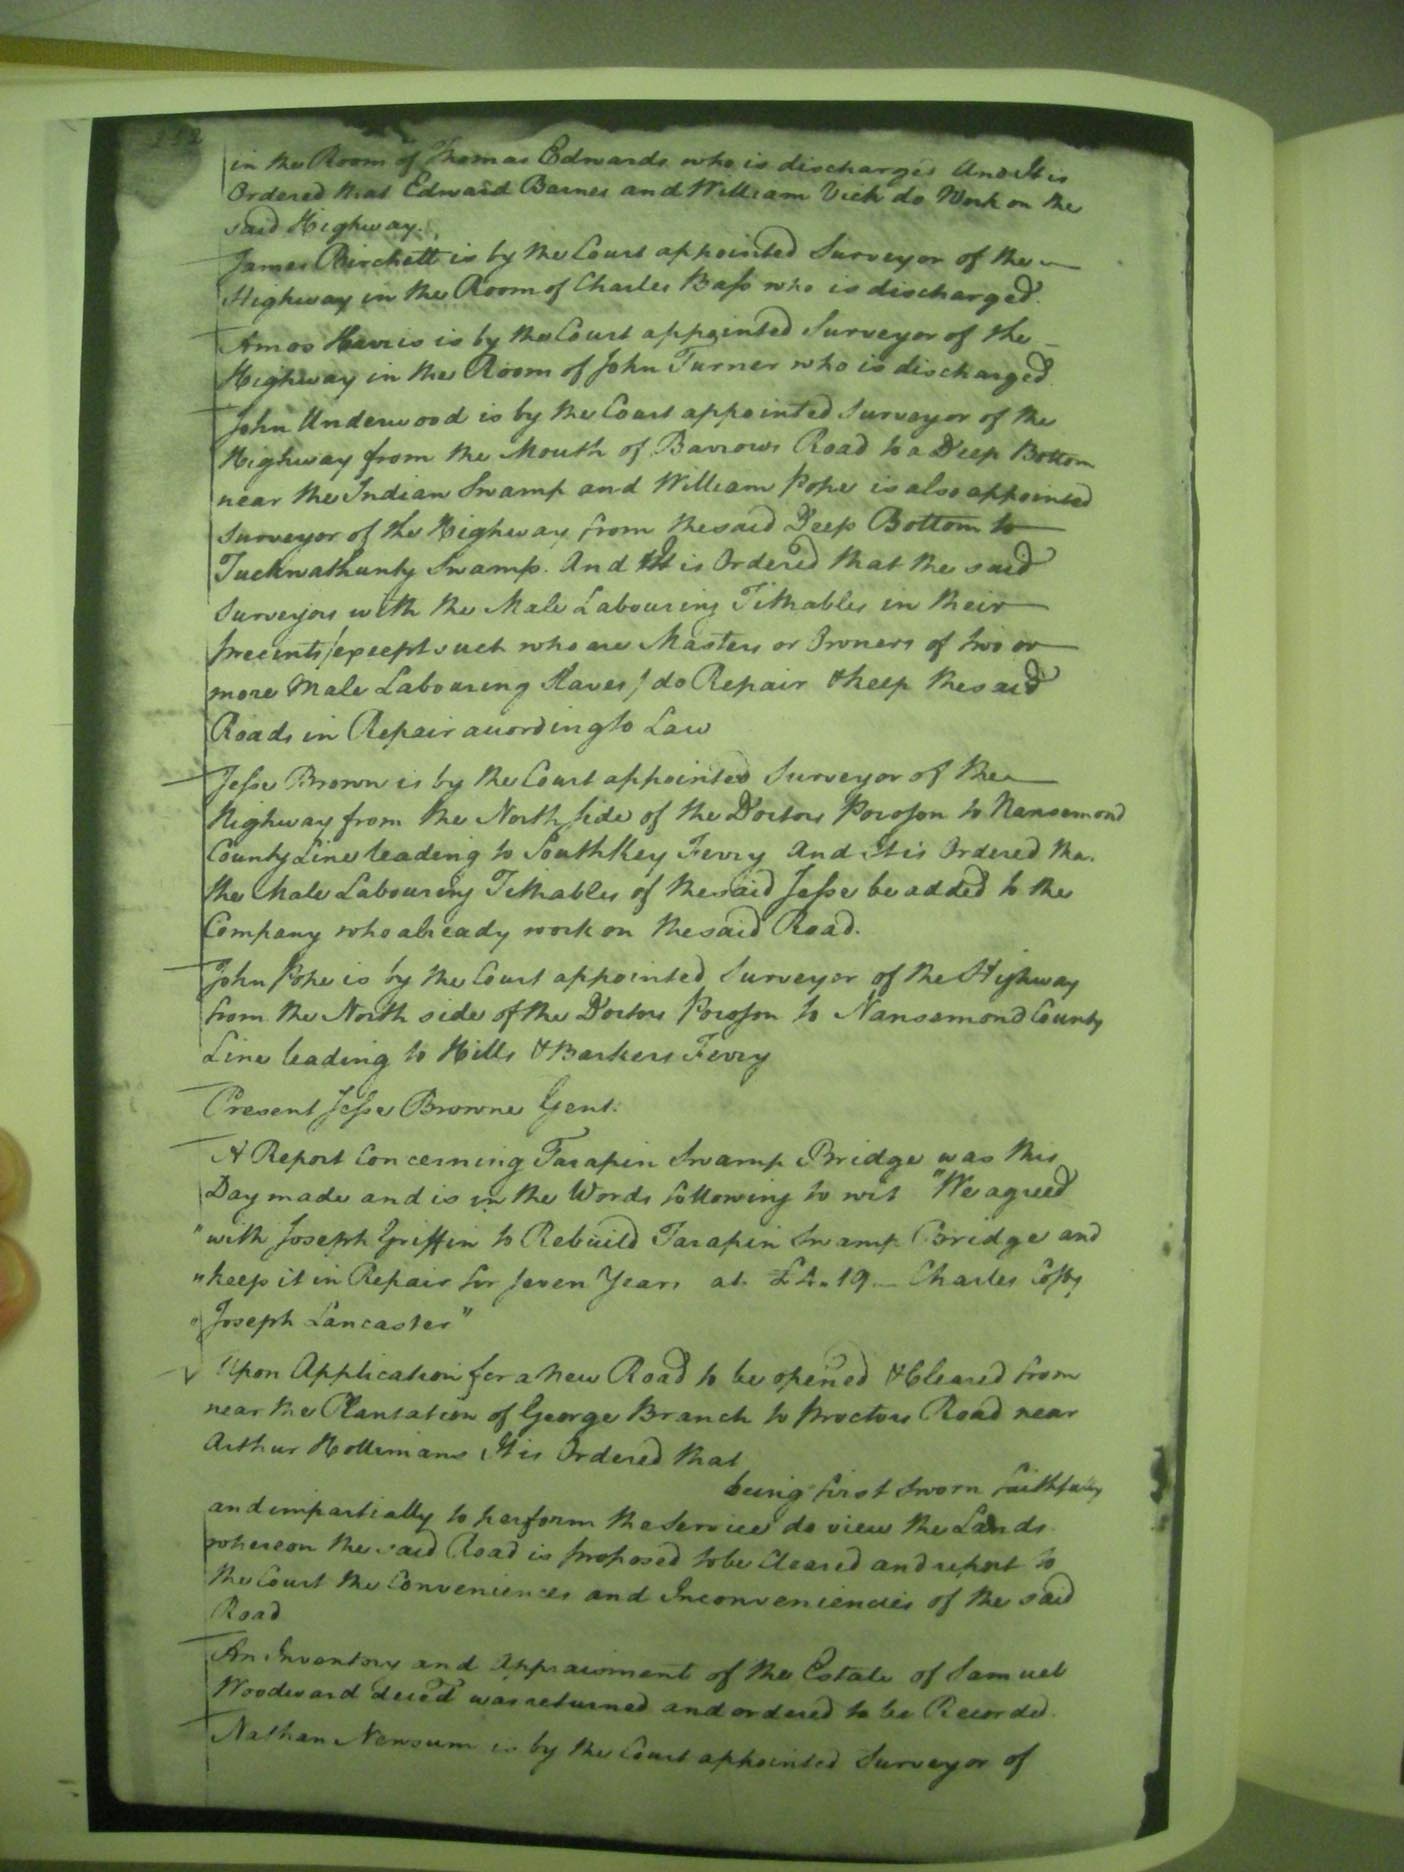 in the Room of Thomas Edwards who is discharged And It is
Ordered that Edward Barnes and William Vick do Work on the
said Highway.
James Birchett is by the Court appointed Surveyor of the
Highway in the Room of Charles Bass who is discharged.
Amos Harris is by the Court appointed Surveyor of the
Highway in the Room of John Turner who is discharged.
John Underwood is by the Court appointed Surveyor of the
Highway from the Mouth of Barrows Road to a Deep Bottom
near the Indian Swamp and William Pope is also appointed
Surveyor of the Highway from the said Deep Bottom to
Swamp. And It is Ordered that the said
Surveyors with the Male Labouring Tithables in their
precincts/except such who are Masters or Owners of two or
more Male Labouring Slaves/do Repair & keep the said
Roads in Repair according to Law
Jesse Brown is by the Court appointed Surveyor of the
Highway from the North side of the Doctors Poroson to Nansemond
County Line leading to South Key Ferry And It is Ordered tha
the Male Labouring Tithables of the said Jesse be added to the
Company who already work on the said Road.
John Pope is by the Court appointed Surveyor of the Highway
from the North side of the Doctors Poroson to Nansemond County
Line leading to Hills & Barkers Ferry
Present Jesse Browne Gent.
A Report Concerning Tarapin Swamp Bridge was this
Day made and is in the Words following to wit "We agreed
"with Joseph Griffin to Rebuild Tarapin Swamp Bridge and
"keep it in Repair for seven Years at £4.19 — Charles Cosby
"Joseph Lancaster"
Upon Application for a New Road to be opened & Cleared from
near the Plantation of George Branch to Proctors Road near
Arthur Hollimans It is Ordered that
being first Sworn faithfully
and impartially to perform the Service do view the Lands
whereon the said Road is proposed to be Cleared and report to
the Court the Conveniences and Inconveniencies of the said
Road
An Inventory and Appraisment of the Estate of Samuel
Woodward deced was returned and ordered to be Recorded.
Nathan Newsum is by the Court appointed Surveyor of